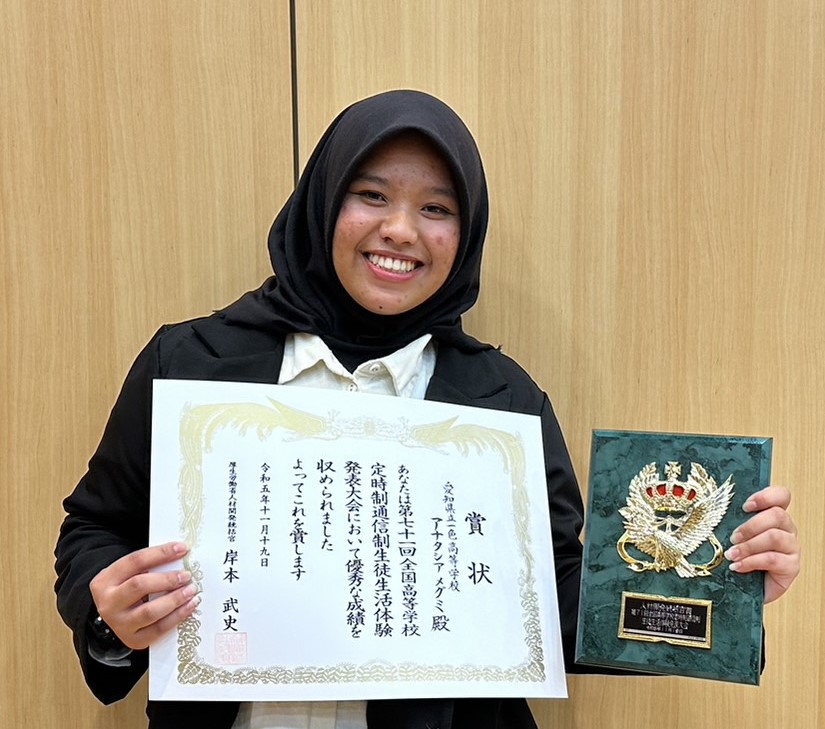 賞状
愛知県立一色高等学校
アナタシア メグミ 殿
あなたは第七十一回全国高等学校
定時制通信制生徒生活体験
発表大会において優秀な成績を
収められました
よってこれを賞します
令和五年十一月十九日
厚生労働省人材開発統括官
岸本 武史
人材開発統括官賞